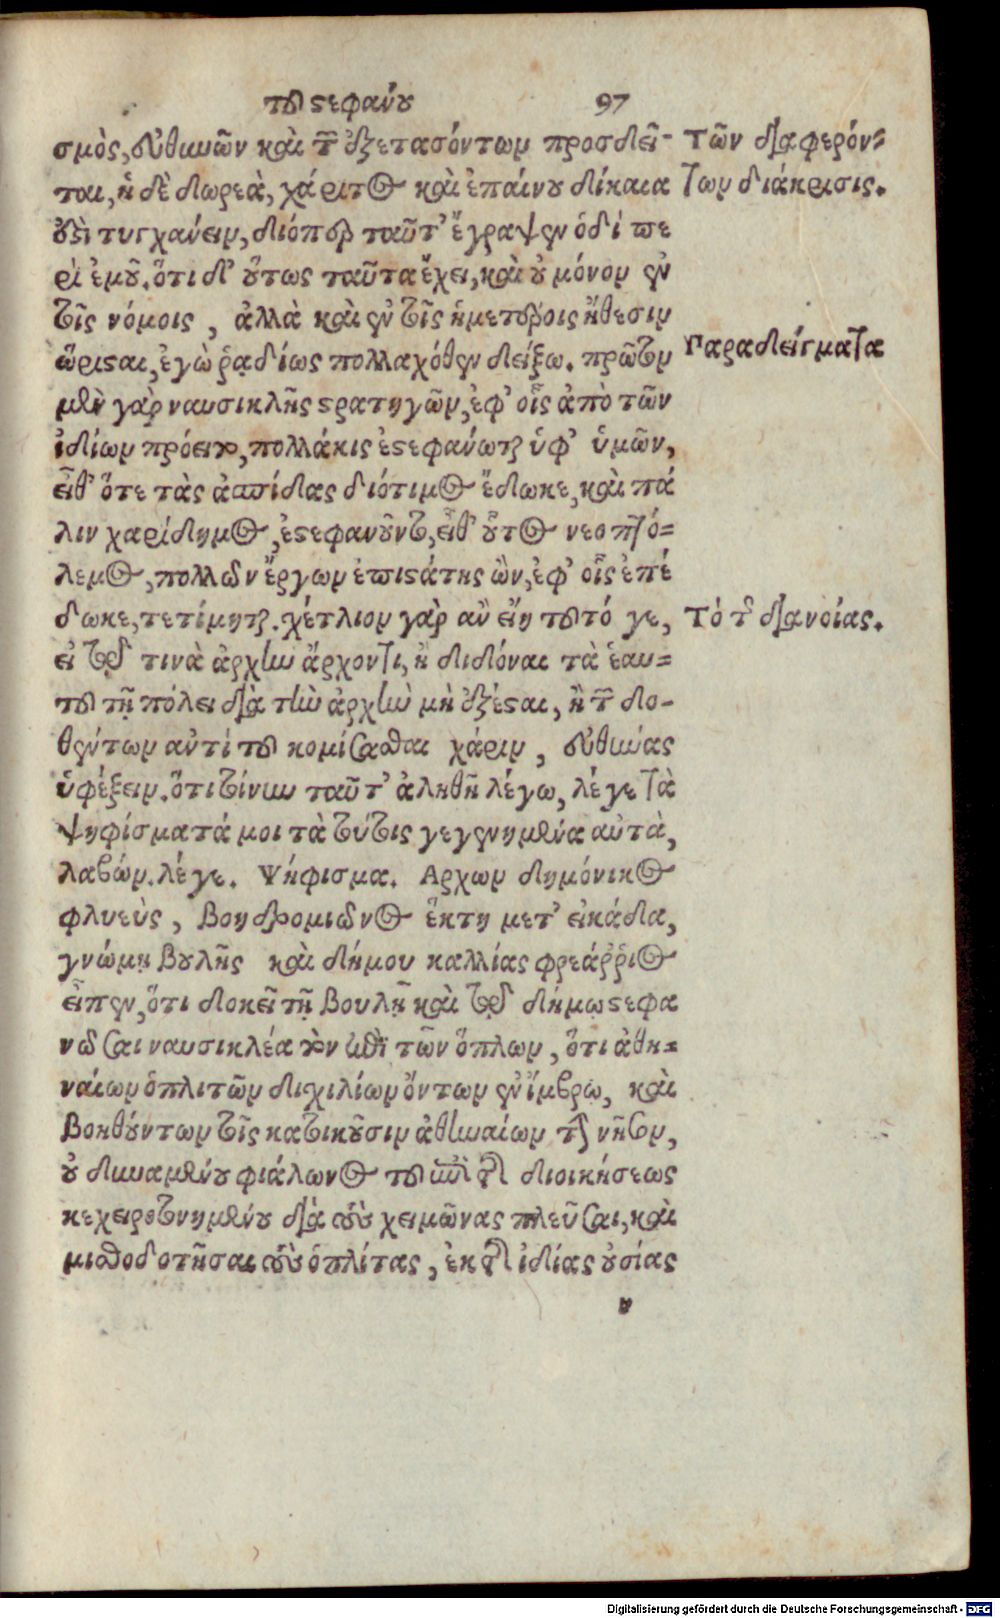 τοῦ στεφάνου 97
σμὸς, εὐθυνῶν καὶ τῶν ἐξετασόντων προσδεῖ-
ται, ἡ δὲ δωρεὰ, χάριτος καὶ ἐπαίνου δίκαια
ἐστὶ τυγχάνειν, διόπερ ταῦτ' ἔγραψεν ὁδὶ πε
ρὶ ἐμοῦ. ὅτι δ' οὕτως ταῦτα ἔχει, καὶ οὐ μόνον ἐν
τοῖς νόμοις, ἀλλὰ καὶ ἐν τοῖς ἡμετέροις ἤθεσιν
ὥρισται, ἐγὼ ῥᾳδίως πολλαχόθεν δείξω. πρῶτον
μὲν γὰρ ναυσικλῆς στρατηγῶν, ἐφ' οἷς ἀπὸ τῶν
ἰδίων πρόειτο, πολλάκις ἐστεφάνωται ὑφ' ὑμῶν,
εἶθ' ὅτε τὰς ἀσπίδας διότιμος ἔδωκε, καὶ πά
λιν χαρίδημος, ἐστεφανοῦντο, εἶθ' οὗτος νεοπτό-
λεμος, πολλῶν ἔργων ἐπιστάτης ὢν, ἐφ' οἷς ἐπέ
δωκε, τετίμηται. χέτλιον γὰρ ἂν εἴη τοῦτό γε,
εἰ τῷ τινὰ ἀρχὴν ἄρχοντι, ἢ διδόναι τὰ ἑαυ-
τοῦ τῇ πόλει διὰ τὴν ἀρχὴν μὴ ἐξέσται, ἢ τῶν δο-
θέντων ἀντὶ τοῦ κομίσασθαι χάριν, εὐθύνας
ὑφέξειν. ὅτι τοίνυν ταῦτ' ἀληθῆ λέγω, λέγε τὰ
ψηφίσματά μοι τὰ τούτοις γεγενημένα αὐτὰ,
λαβών. λέγε. Ψήφισμα. Αρχων δημόνικος
φλυεὺς, βοηδρομιῶνος ἕκτη μετ' εἰκάδα,
γνώμῃ βουλῆς καὶ δήμου καλλίας φρεάῤῥιος
εἶπεν, ὅτι δοκεῖ τῇ βουλῇ καὶ τῷ δήμῳ στεφα
νῶσαι ναυσικλέα τὸν ἐπὶ τῶν ὅπλων, ὅτι ἀθη-
ναίων ὁπλιτῶν δισχιλίων ὄντων ἐν ἴμβρῳ, καὶ
βοηθούντων τοῖς κατοικοῦσιν ἀθηναίων τὴν νῆσον,
οὐ δυναμένου φιάλωνος τοῦ ἐπὶ τῆς διοικήσεως
κεχειροτονημένου διὰ τοὺς χειμῶνας πλεῦσαι, καὶ
μισθοδοτῆσαι τοὺς ὁπλίτας, ἐκ τῆς ἰδίας οὐσίας
ν
Τῶν διαφερόν-
των διάκρισις.
Παραδείγματα
Τὸ τῆς διανοίας.
Digitalisierung gefördert durch die Deutsche Forschungsgemeinschaft - DFG